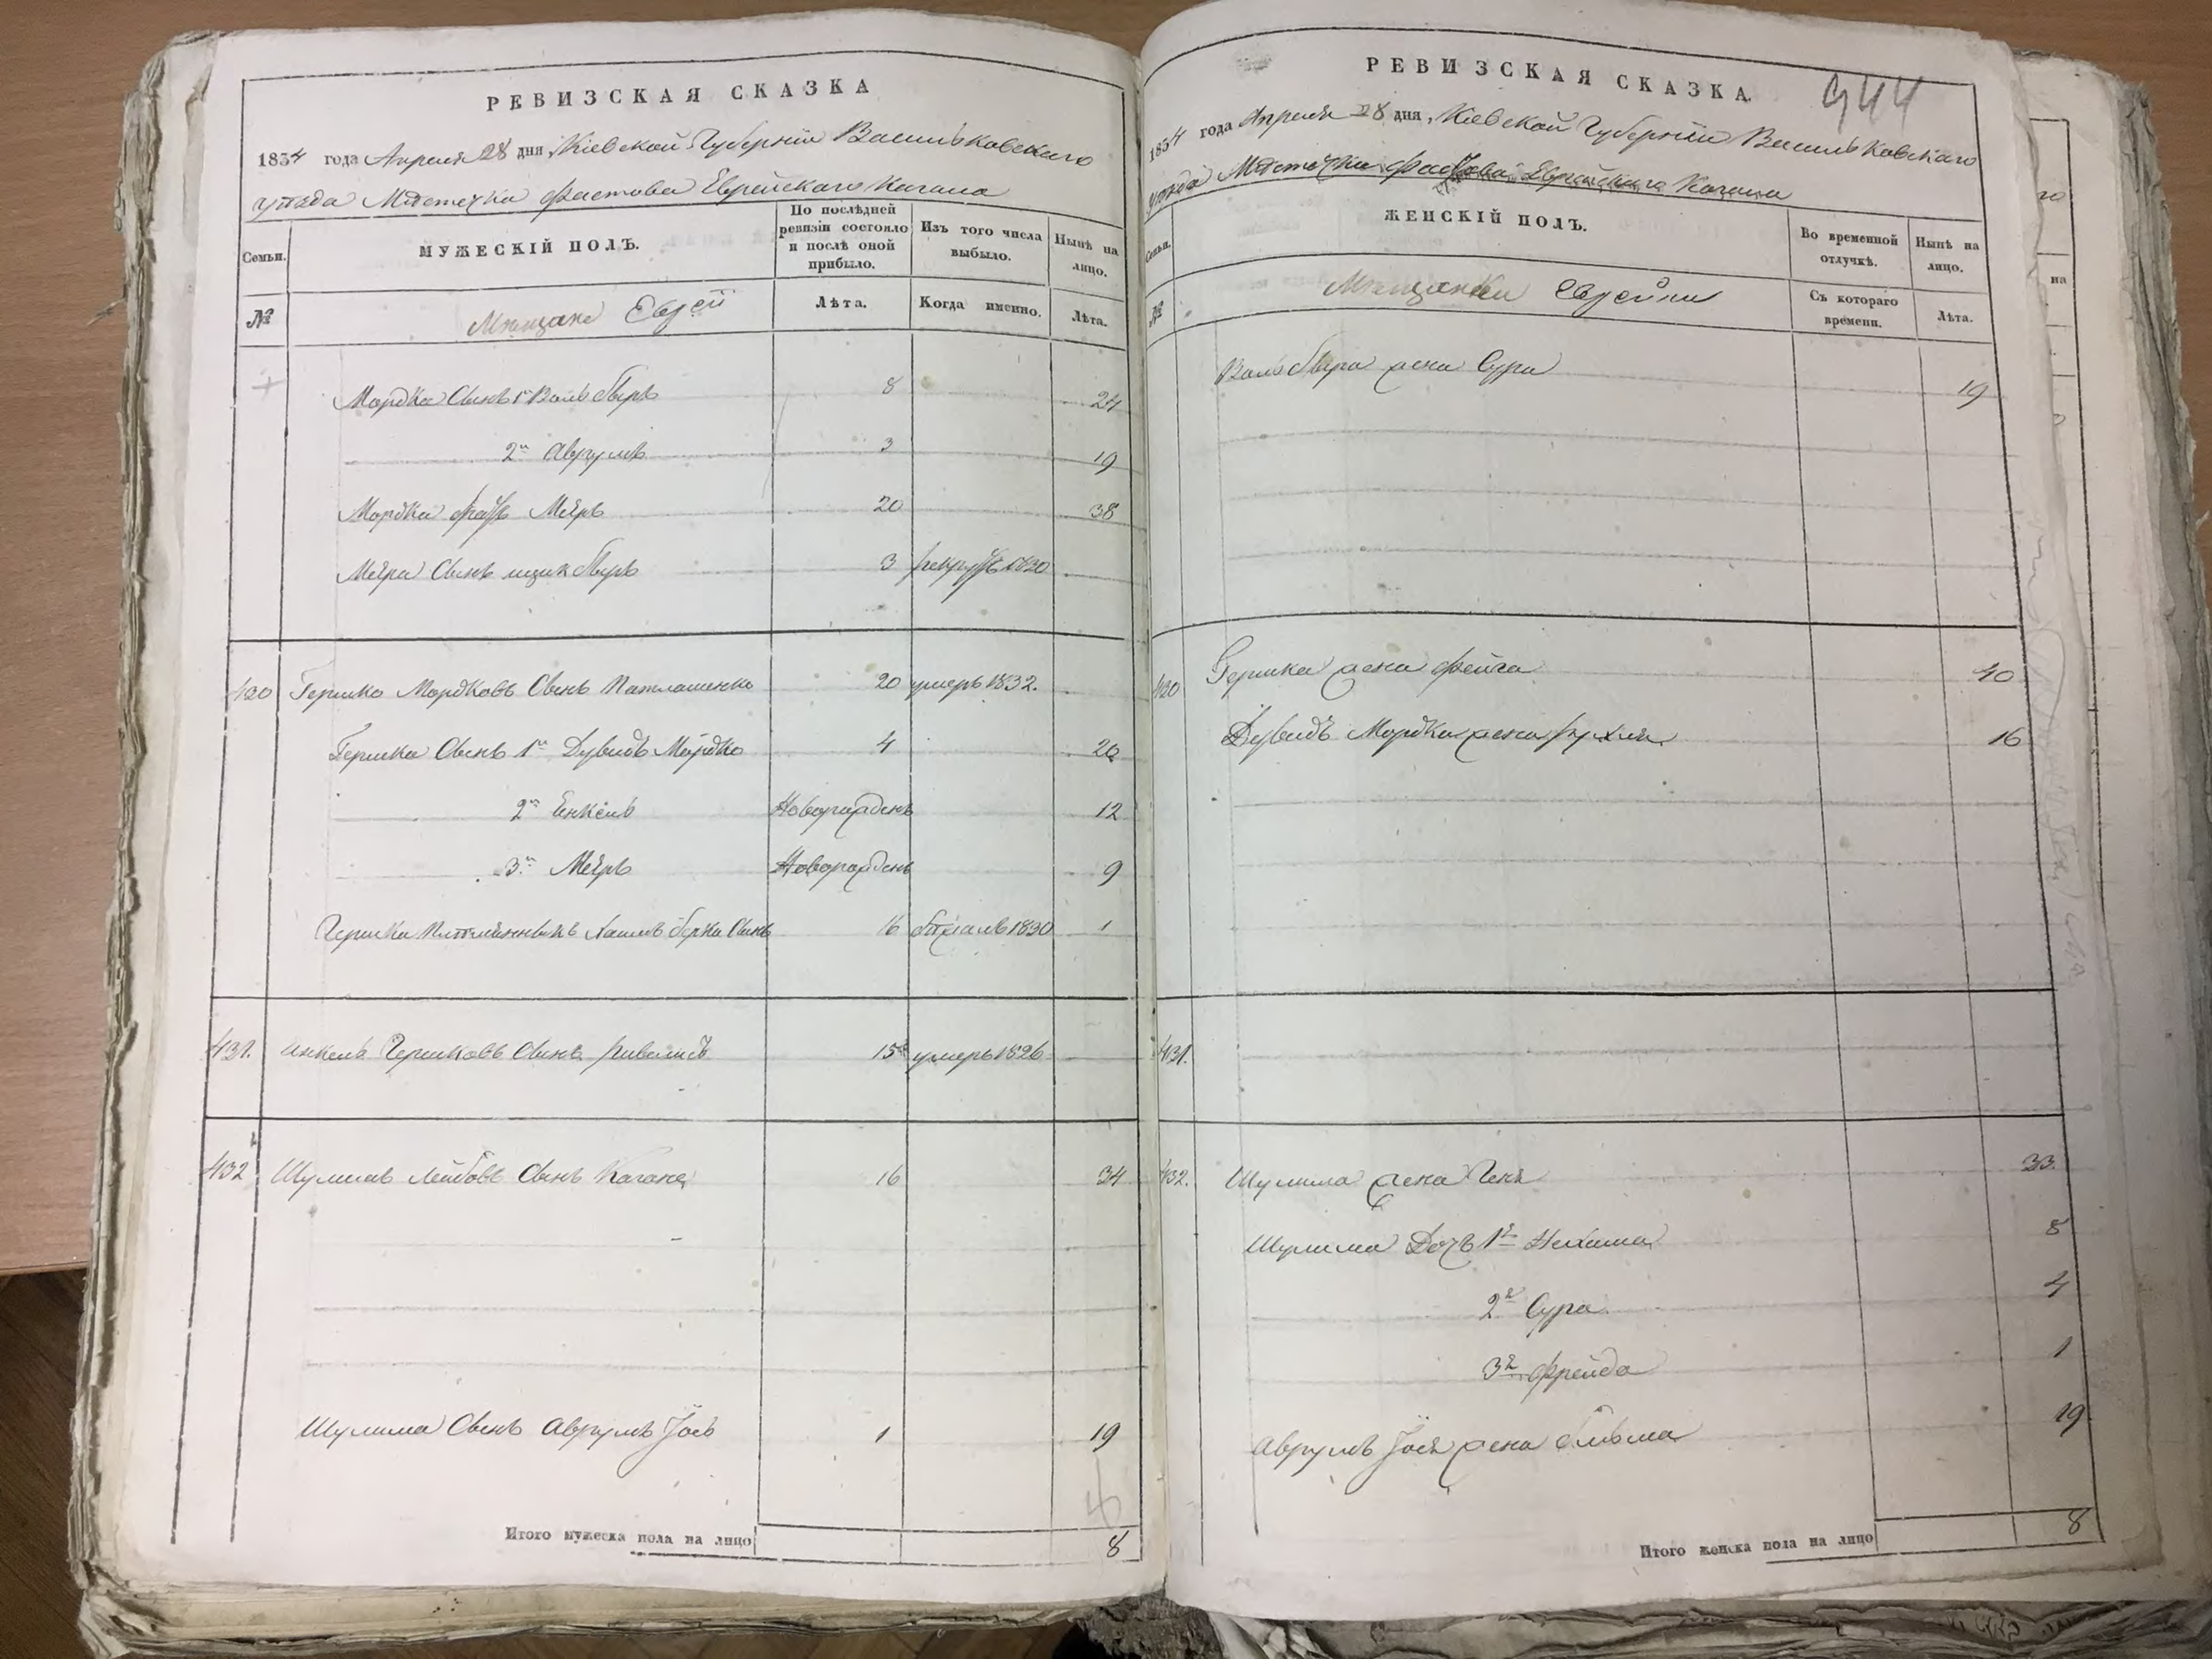 РЕВИЗСКАЯ СКАЗКА
1834 года Апреля 28 дня, Кіевской Губерніи Васильковскаго
уезда Мѣстечка Фастова Еврейскаго Кагала
Семьи.
МУЖЕСКІЙ ПОЛЪ.
По послѣдней ревизіи состояло и послѣ оной прибыло.
Изъ того числа выбыло.
Нынѣ на лицо.
№
Мещане Еврей
Лѣта.
Когда именно.
Лѣта.
Мордка Сынъ 1й Воль Беръ 8 24
2й Аврумъ 3 19
Мордки братъ Меяръ 20 38
Меяра Сынъ ицик Беръ 3 рекрутъ 1830
430 Гершко Мордковъ Сынъ Патлашенко 20 умеръ 1832.
Гершка Сынъ 1й Дувидъ Мордко 4 26
2й Енкель Новорожденъ 12
3й Меяръ Новорожденъ 9
Гершка Племянникъ Берка Сынъ 16 бежалъ 1830 1
431. Инкель Гершковъ Сынъ 15 умеръ 1826
432 Шулимъ Лейбовъ Сынъ Кагане 16 34
Шулима Сынъ Аврумъ Іось 1 19
Итого мужеска пола на лицо 8
РЕВИЗСКАЯ СКАЗКА.
944
1834 года Апреля 28 дня, Кіевской Губерніи Васильковскаго
уезда Мѣстечка Фастова Еврейскаго Кагала
Семьи.
ЖЕНСКІЙ ПОЛЪ.
Во временной отлучкѣ.
Нынѣ на лицо.
№
Мещанки Еврейки
Съ котораго времени.
Лѣта.
Воль Бера жена Сура 19
430 Гершка жена Фейга 40
Дувидъ Мордка жена Рухля 16
431.
432. Шулима жена Геня 33
Шулима Дочь 1я Нехама 8
2я Сура 4
3я Фрейда 1
Аврумъ Іося жена 19
Итого женска пола на лицо 8